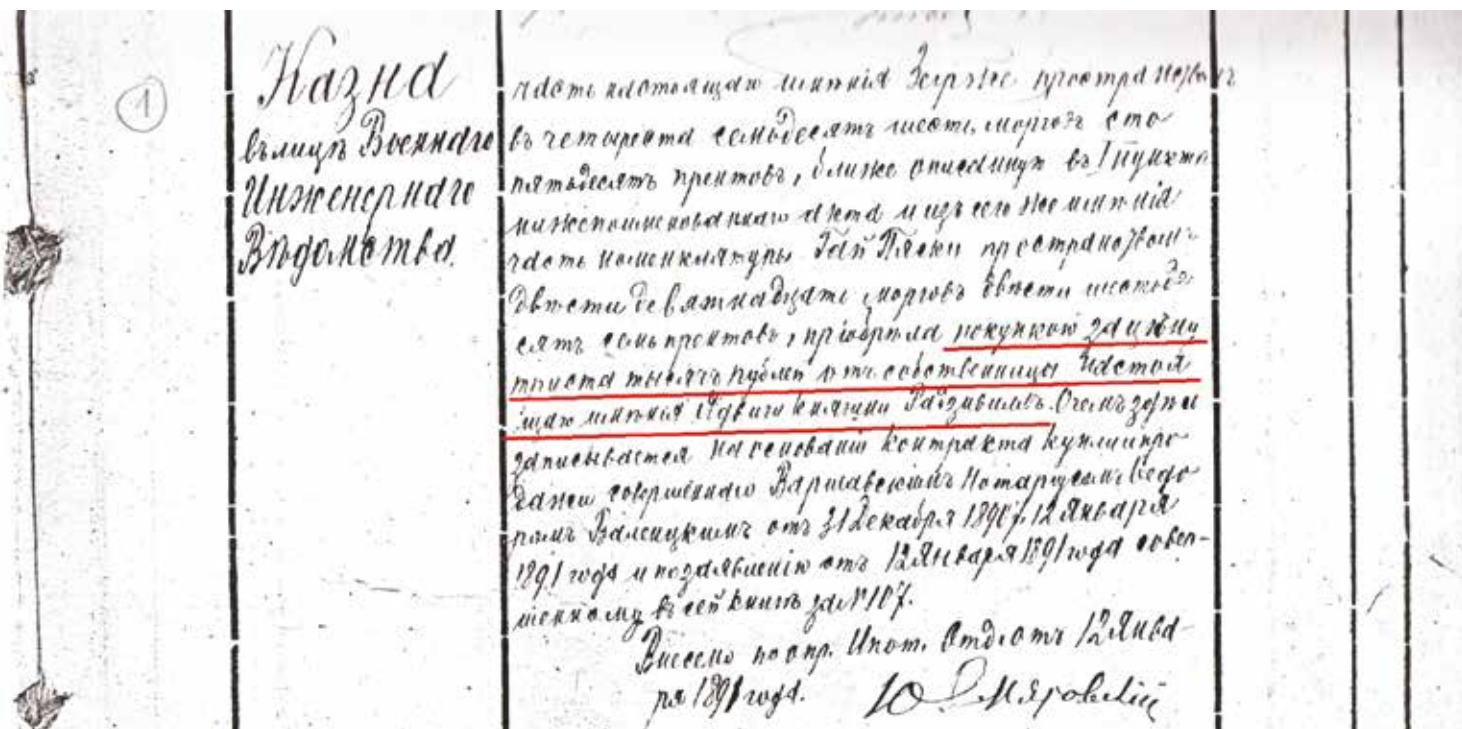 1
Казна
въ лицѣ Военнаго
Инженернаго
Вѣдомства.
часть настоящаго имѣнія Зегрже пространствомъ
въ четыреста семьдесятъ шесть моргов сто
пятьдесятъ прентовъ, ближе описанную въ I пункта
нижепоименованнаго акта и изъ сего же имѣнія
часть номенклятуры Гай Пяски пространствомъ
двѣсти девятнадцать морговъ двѣсти шестьде
сятъ семь прентовъ, пріобрѣла покупкою за цѣну
триста тысячъ рублей отъ собственницы настоя
щаго имѣнія Ядвиги княгини Радзивиллъ. О чемъ здѣсь
записывается на основаніи контракта купли и про
дажи совершеннаго Варшавскимъ Нотаріусомъ
отъ 31 Декабря 1890 / 12 Января
1891 года и по заявленію отъ 12 Января 1891 года совер-
шенному въ сей книгѣ за № 107.
Внесено по опр. Ипот. Отд. отъ 12 Янва-
ря 1891 года.